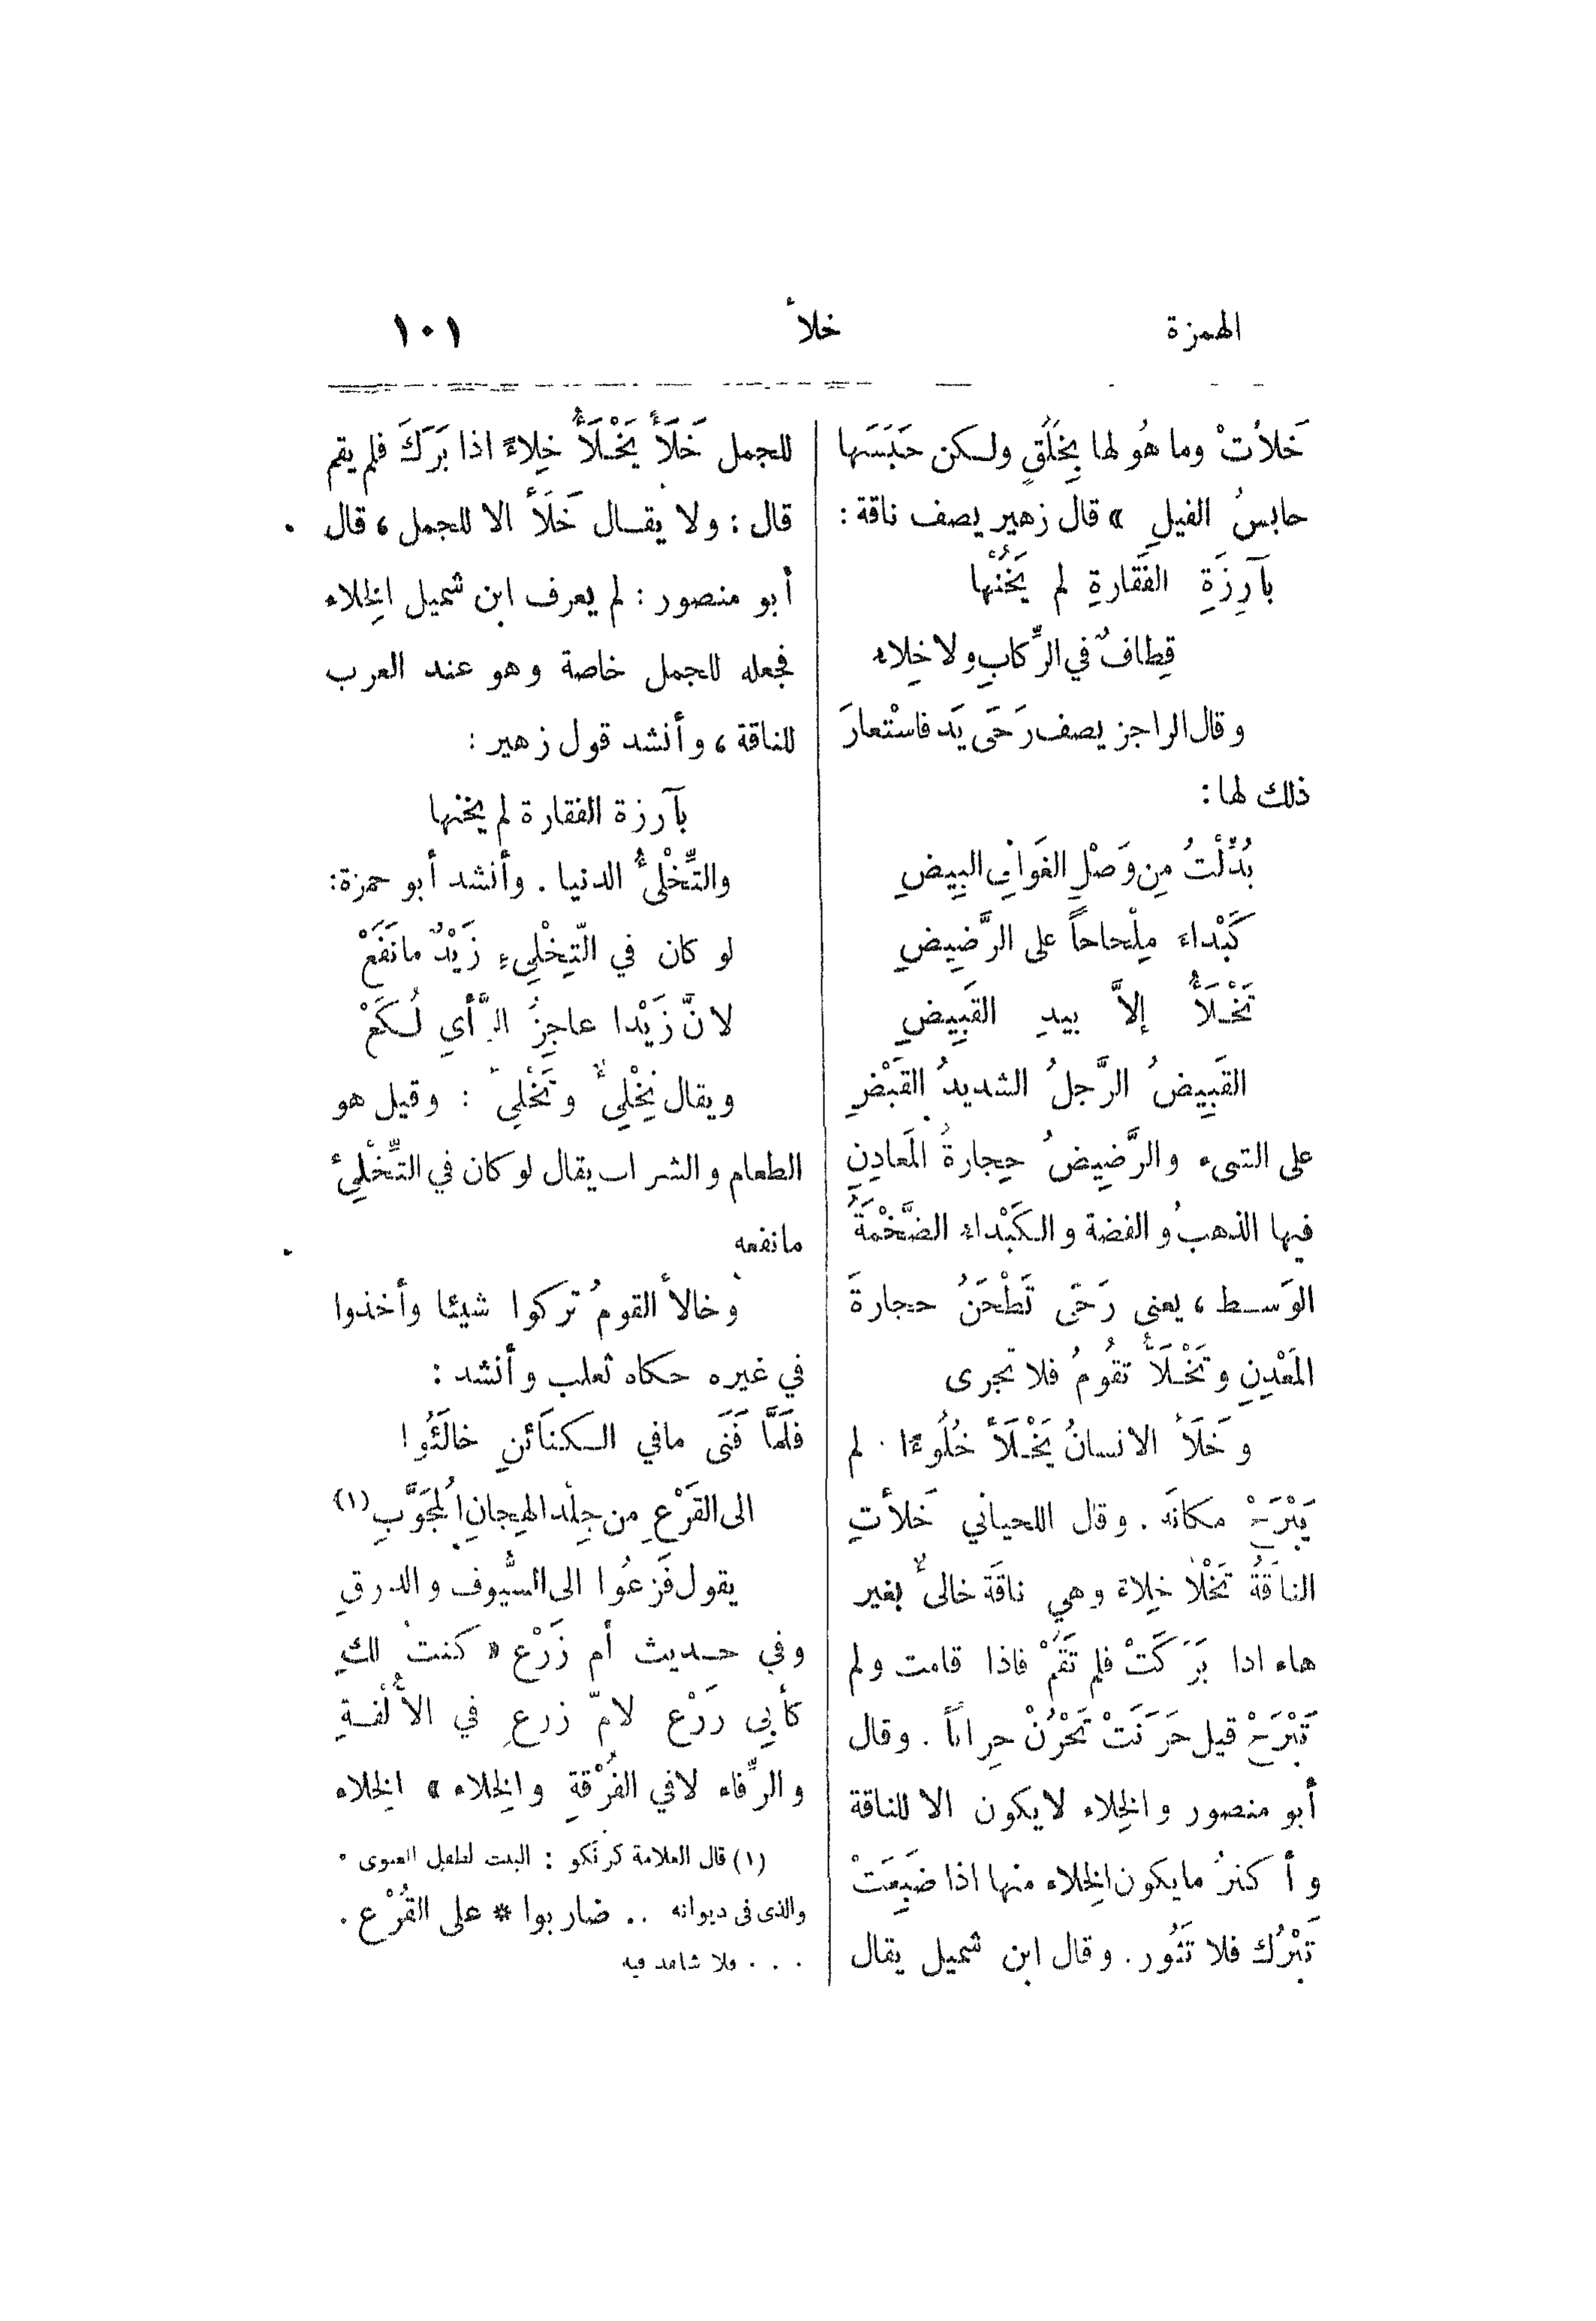 الهمزة
خلأ
١٠١
خَلأتْ وما هُو لها بِخُلُقٍ ولكن حَبَسَها
حابسُ الفيلِ » قال زهير يصف ناقة :
بآرِزَةِ الفَقارةِ لم يَخُنْها
قِطافٌ في الرِّكابِ ولا خِلاء
وقال الراجز يصف رَحَى يَد فاسْتعارَ
ذلك لها :
بُدِّلْتُ مِن وَصْلِ الغَوانى البِيضِ
كَبْداء مِلْحاحاً على الرَّضِيضِ
تَخْلَأُ إلاَّ بيدِ القَبِيضِ
القَبِيضُ الرَّجلُ الشديدُ القَبْضِ
على الشىء والرَّضِيضُ حِجارةُ المَعادِنِ
فيها الذهبُ والفضة والكَبْداء الضَّخْمَةُ
الوَسط ، يعنى رَحَى تَطْحَنُ حجارةَ
المَعْدِنِ وتَخْلَأُ تقُومُ فلا تجرى
وخَلَأ الانسانُ يَخْلَأُ خُلُوءًا . لم
يَبْرَحْ مكانَه . وقال اللحياني خَلأتِ
الناقَةُ تَخْلأ خِلاء وهي ناقَة خالىٌ بغير
هاء اذا بَرَكَتْ فلم تَقُمْ فاذا قامت ولم
تَبْرَحْ قيل حَرَنَتْ تَحْرُنْ حِراناً . وقال
أبو منصور والخِلاء لا يكون الا للناقة
وأكثرُ ما يكون الخِلاء منها اذا ضَبِعَتْ
تَبْرُك فلا تَثُور . وقال ابن شميل يقال
للجمل خَلَأَ يَخْلَأُ خِلاءً اذا بَرَكَ فلم يقم
قال : ولا يقال خَلَأَ الا للجمل ، قال
أبو منصور : لم يعرف ابن شميل الخِلاء
فجعله للجمل خاصة وهو عند العرب
للناقة ، وأنشد قول زهير :
بآرزة الفقارة لم يخنها
والتِّخْلىُْ الدنيا . وأنشد أبو حمزة :
لو كان في التِّخْلِيءِ زَيْدٌ مانَفَعْ
لانَّ زَيْدا عاجِزُ الرَّأيِ لُكَعْ
ويقال تِخْلِيٌ وتَخْلِي : وقيل هو
الطعام والشراب يقال لو كان في التِّخْلِئ
مانفعه
وخالأ القومُ تركوا شيئا وأخذوا
في غيره حكاه ثعلب وأنشد :
فلَمَّا فَنَى مافي الكنَائنِ خالَئُوا
الى القَرْعِ من جِلْد الهِجانِ المُجَوَّبِ (١)
يقول فَزعُوا الى السُّيوف والدرقِ
وفي حديث أم زَرْع « كنتُ لكِ
كأبي زَرْع لامّ زرعِ في الأُلْفةِ
والرِّفاء لافي الفُرْقةِ والخِلاء » الخِلاء
(١) قال العلامة كرنكو : البيت لطفيل الغنوى .
والذى فى ديوانه .. ضاربوا * على القُرْع .
. . . ولا شاهد فيه